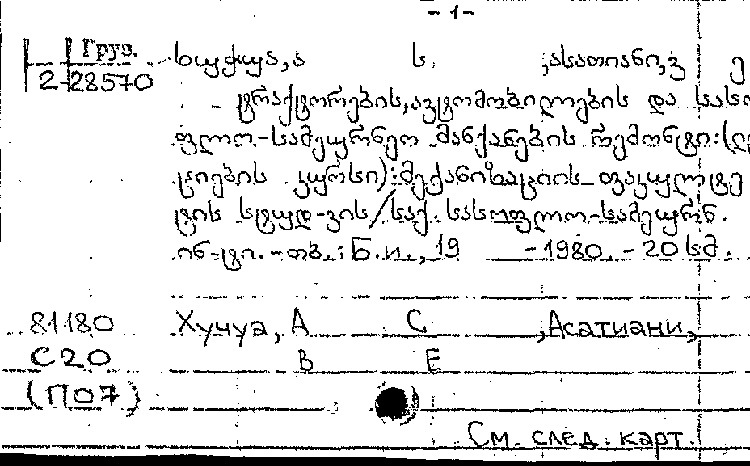 - 1 -
Груз.
2-28570
ხუჭუა, ა ს. ,ასათიანი, ვ ე
ტრაქტორების, ავტომობილების და სასო
ფლო-სამეურნეო მანქანების რემონტი: (ლე
ციების კურსი): მექანიზაციის ფაკულტე
ტის სტუდ-ვის / საქ. სასოფლო-სამეურნ.
ინ-ტი. - თბ.: Б.и., 19 -1980. - 20 სმ.
81180 Хучуа, А С ,Асатиани,
С20 В Е
(П07)
См. след. карт.